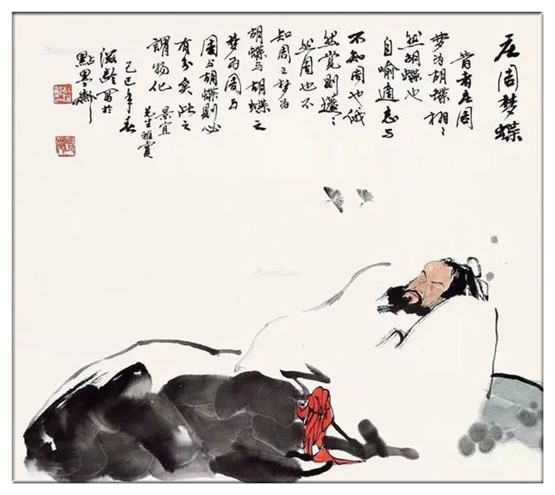 庄周梦蝶
昔者庄周
梦为胡蝶栩〻
然胡蝶也
自喻适志与
不知周也俄
然觉则蘧〻
然周也不
知周之梦为
胡蝶与胡蝶之
梦为周与
周与胡蝶则必
有分矣此之
谓物化 景宜
先生雅赏
己巳年春
滋龄写于
點墨斋